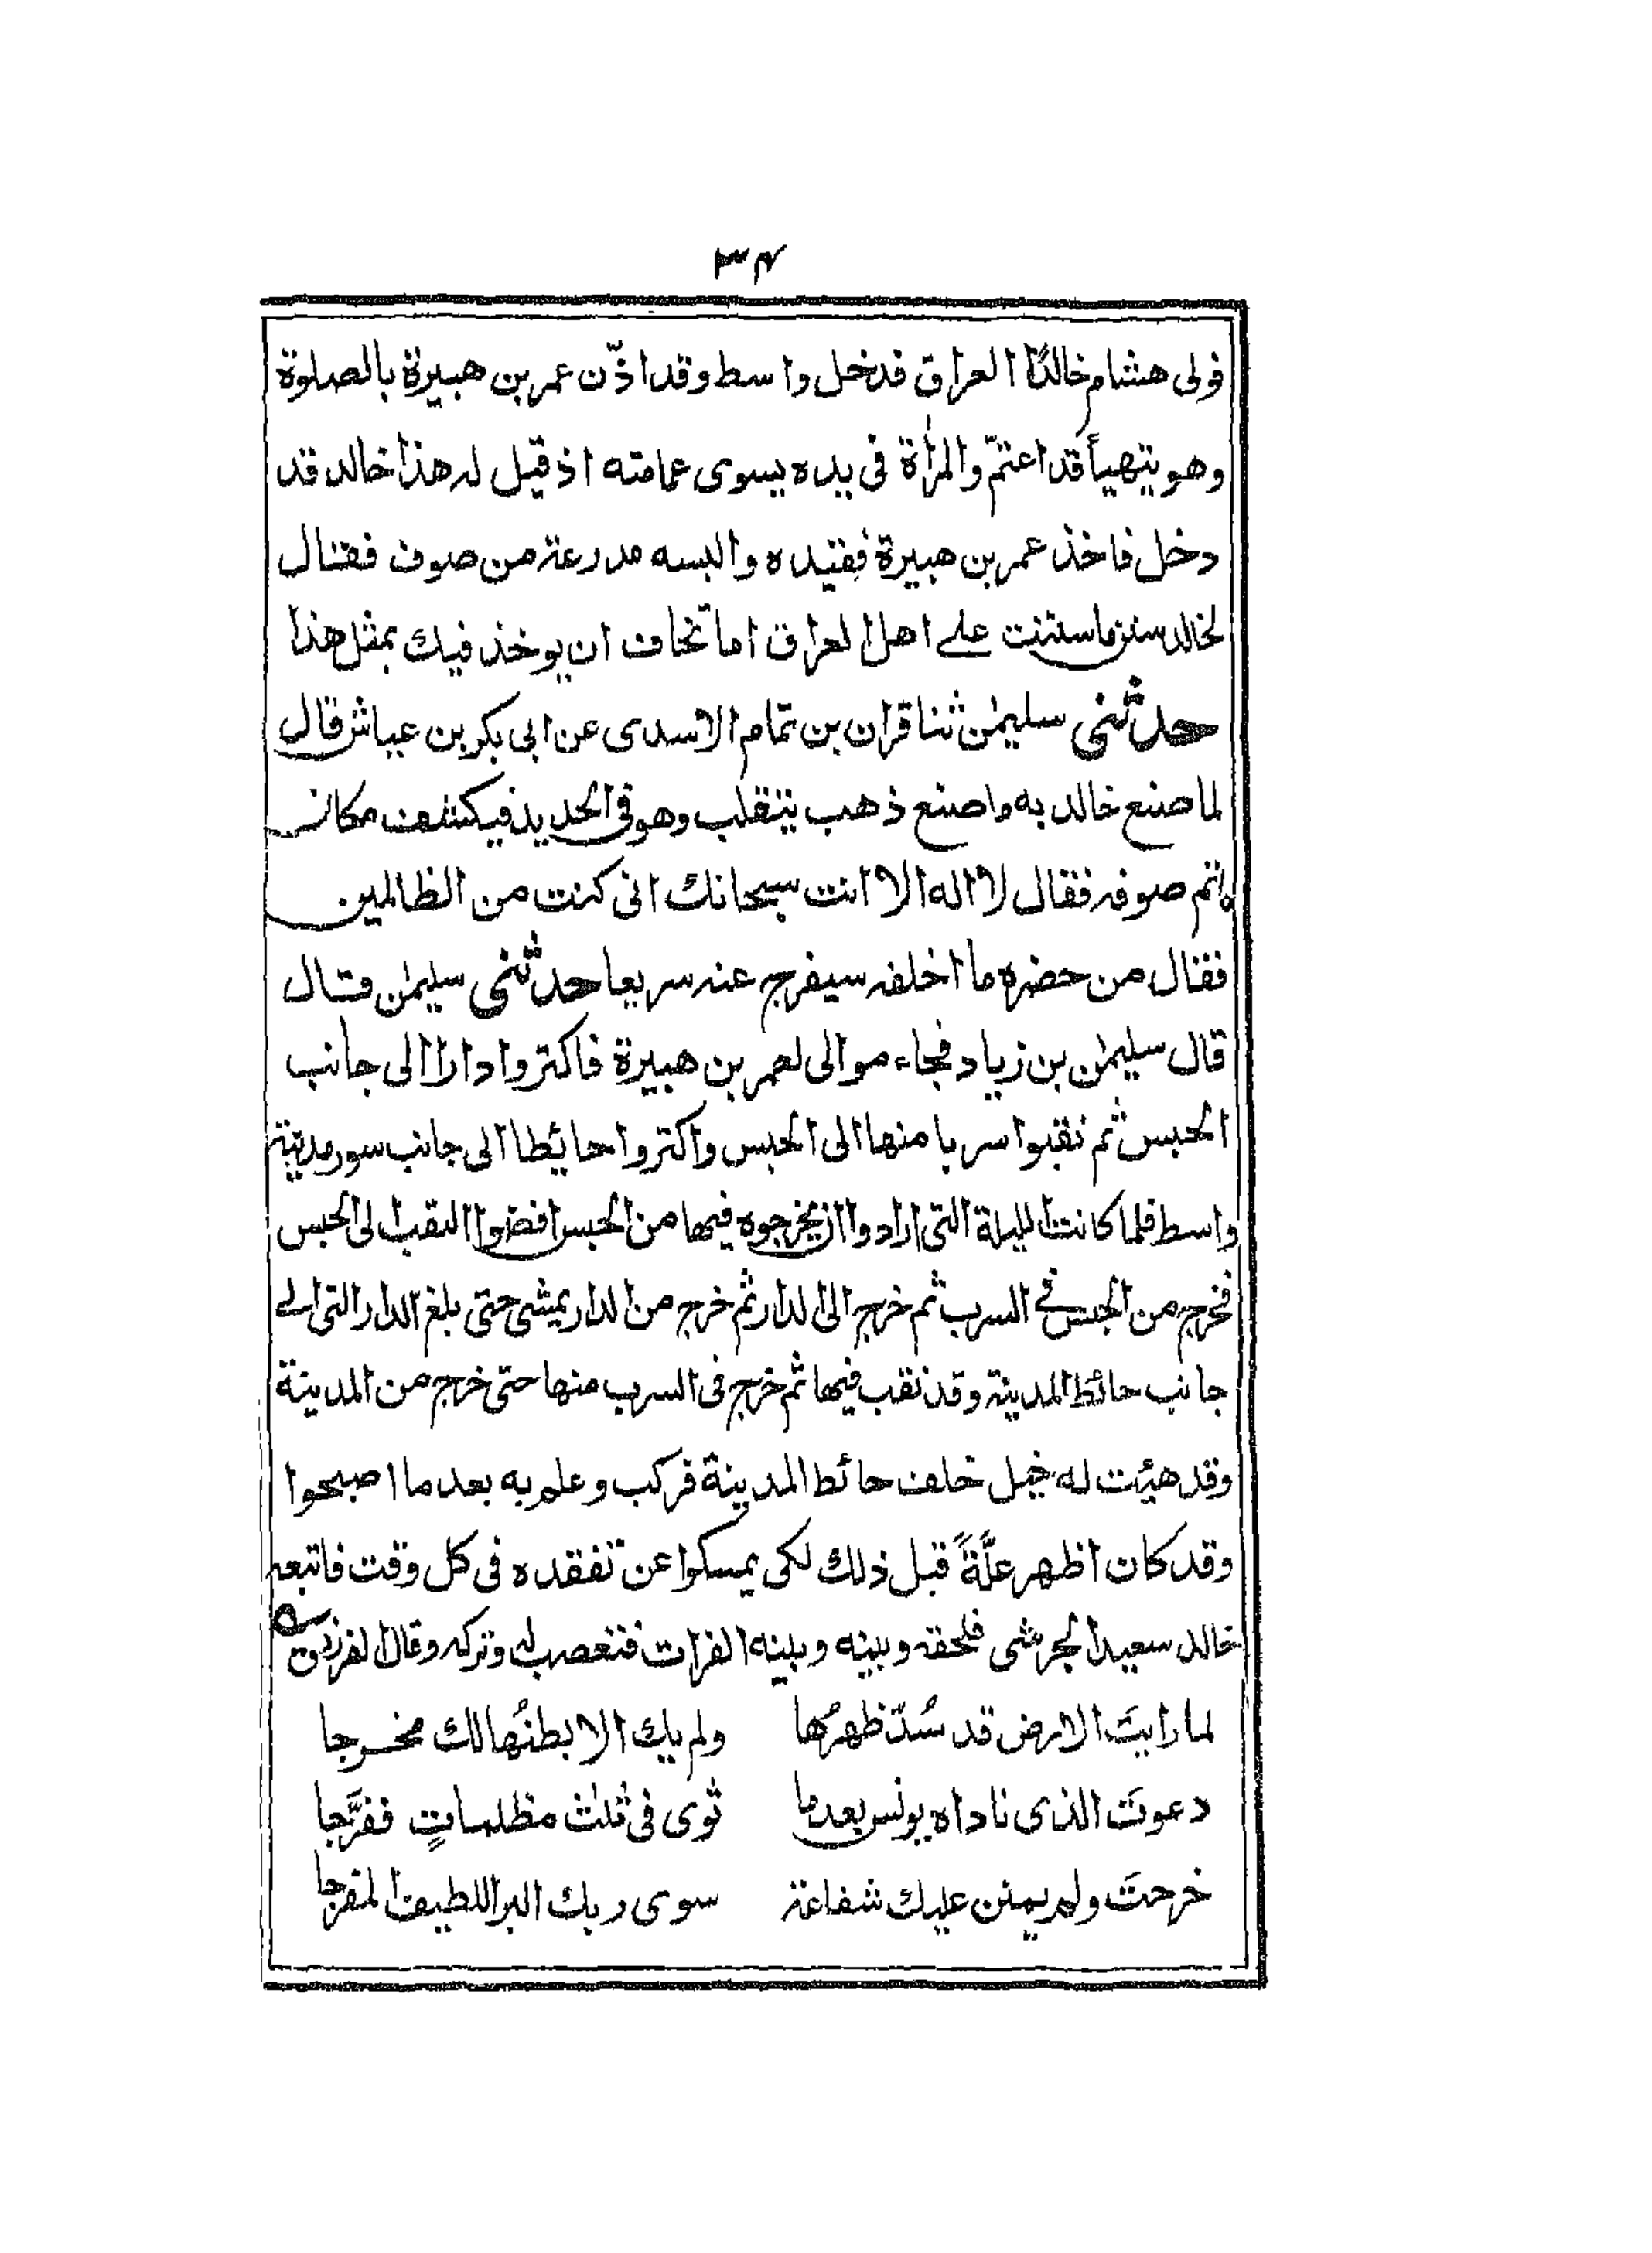 ٣٤
فولى هشام خالدًا العراق فدخل واسط وقد اذّن عمر بن هبيرة بالصلوة
وهو يتهيأ قد اعتمّ والمرأة فى يده يسوى عمامته اذ قيل له هذا خالد قد
دخل فاخذ عمر بن هبيرة فقيده والبسه مدرعة من صوف فقال
لخالد سنن ماستنت على اهل العراق اما تخاف ان يوخذ فيك بمثل هذا
حدثنى سليمٰن ثنا قران بن تمام الاسدى عن ابى بكر بن عياش قال
لما صنع خالد به ما صنع ذهب يتقلب وهو فى الحديد فيكشف مكانه
صوفه فقال لا اله الا انت سبحانك انى كنت من الظالمين
فقال من حضره ما اخلفه سيفرج عنه سريعا حدثنى سليمٰن قال
قال سليمٰن بن زياد فجاء موالى لعمر بن هبيرة فاكتروا دارا الى جانب
الحبس ثم نقبوا سربا منها الى الحبس واكتروا حائطا الى جانب سور مدينة
واسط فلما كانت الليلة التى ارادوا ان يخرجوه فيها من الحبس افضوا النقب الى الحبس
فخرج من الحبس فى السرب ثم خرج الى الدار ثم خرج من الدار يمشى حتى بلغ الدار التى الى
جانب حائط المدينة وقد نقب فيها ثم خرج فى السرب منها حتى خرج من المدينة
وقد هيئت له خيل خلف حائط المدينة فركب وعلم به بعد ما اصبحوا
وقد كان اظهر علَّةً قبل ذلك لكى يمسكوا عن تفقده فى كل وقت فاتبعه
خالد سعيد الجرشى فلحقه وبينه وبينه الفرات فتعصب له وتركه وقال الفرزدق
لما رايتَ الارض قد سُدّ ظهرُها ولم يك الا بطنُها لك مخرجا
دعوتَ الذى ناداه يونس بعد ما ثوى فى ثلٰث مظلماتٍ ففرَّجا
خرجتَ ولم يمنن عليك شفاعة سوى ربك البر اللطيف المفرجا